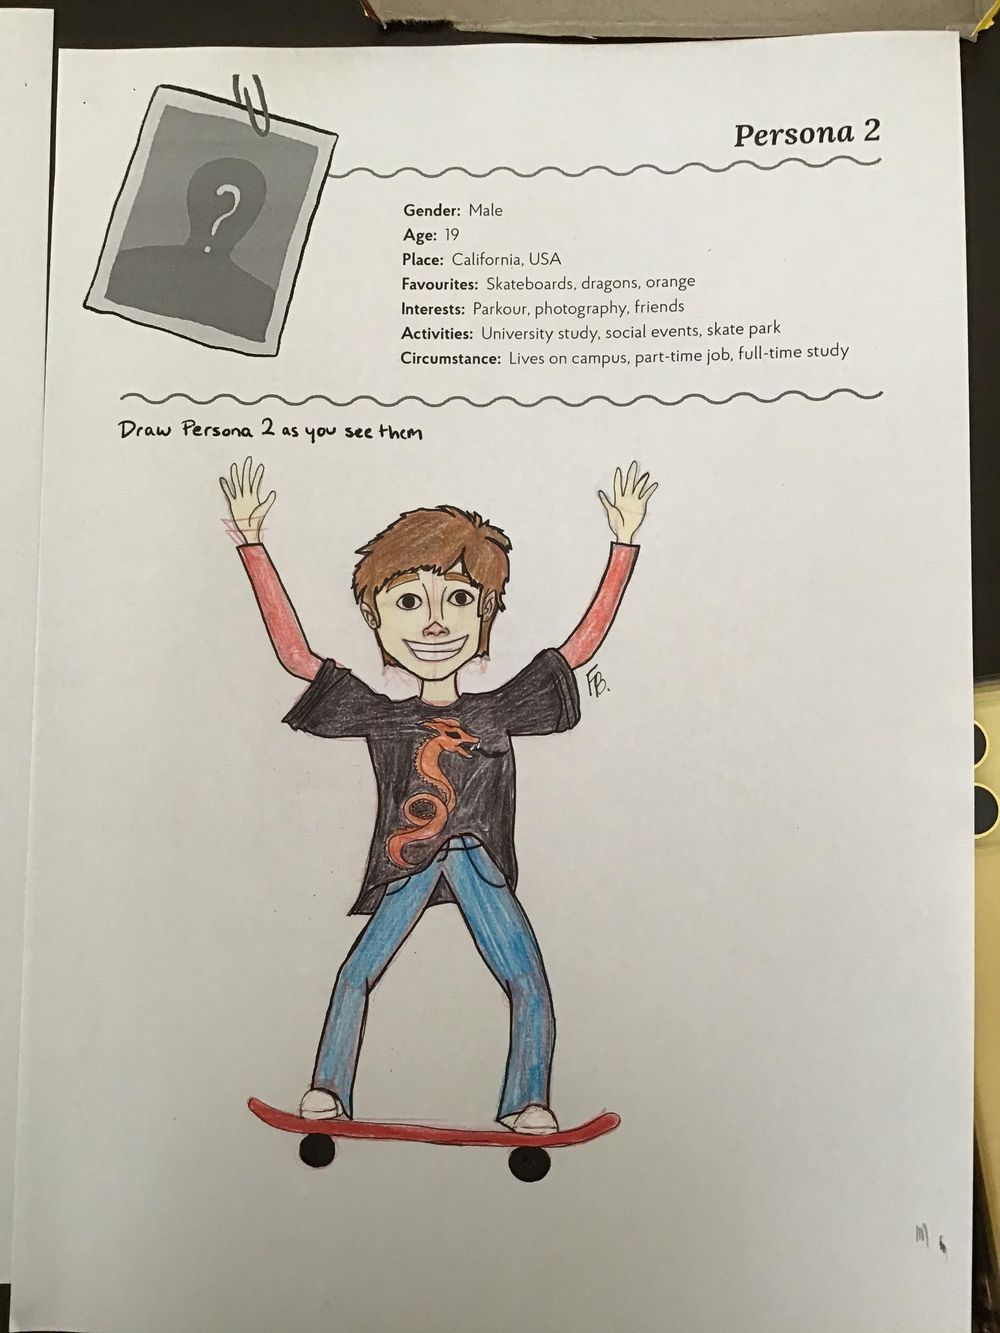 Persona 2
?
Gender: Male
Age: 19
Place: California, USA
Favourites: Skateboards, dragons, orange
Interests: Parkour, photography, friends
Activities: University study, social events, skate park
Circumstance: Lives on campus, part-time job, full-time study
Draw Persona 2 as you see them
FB.